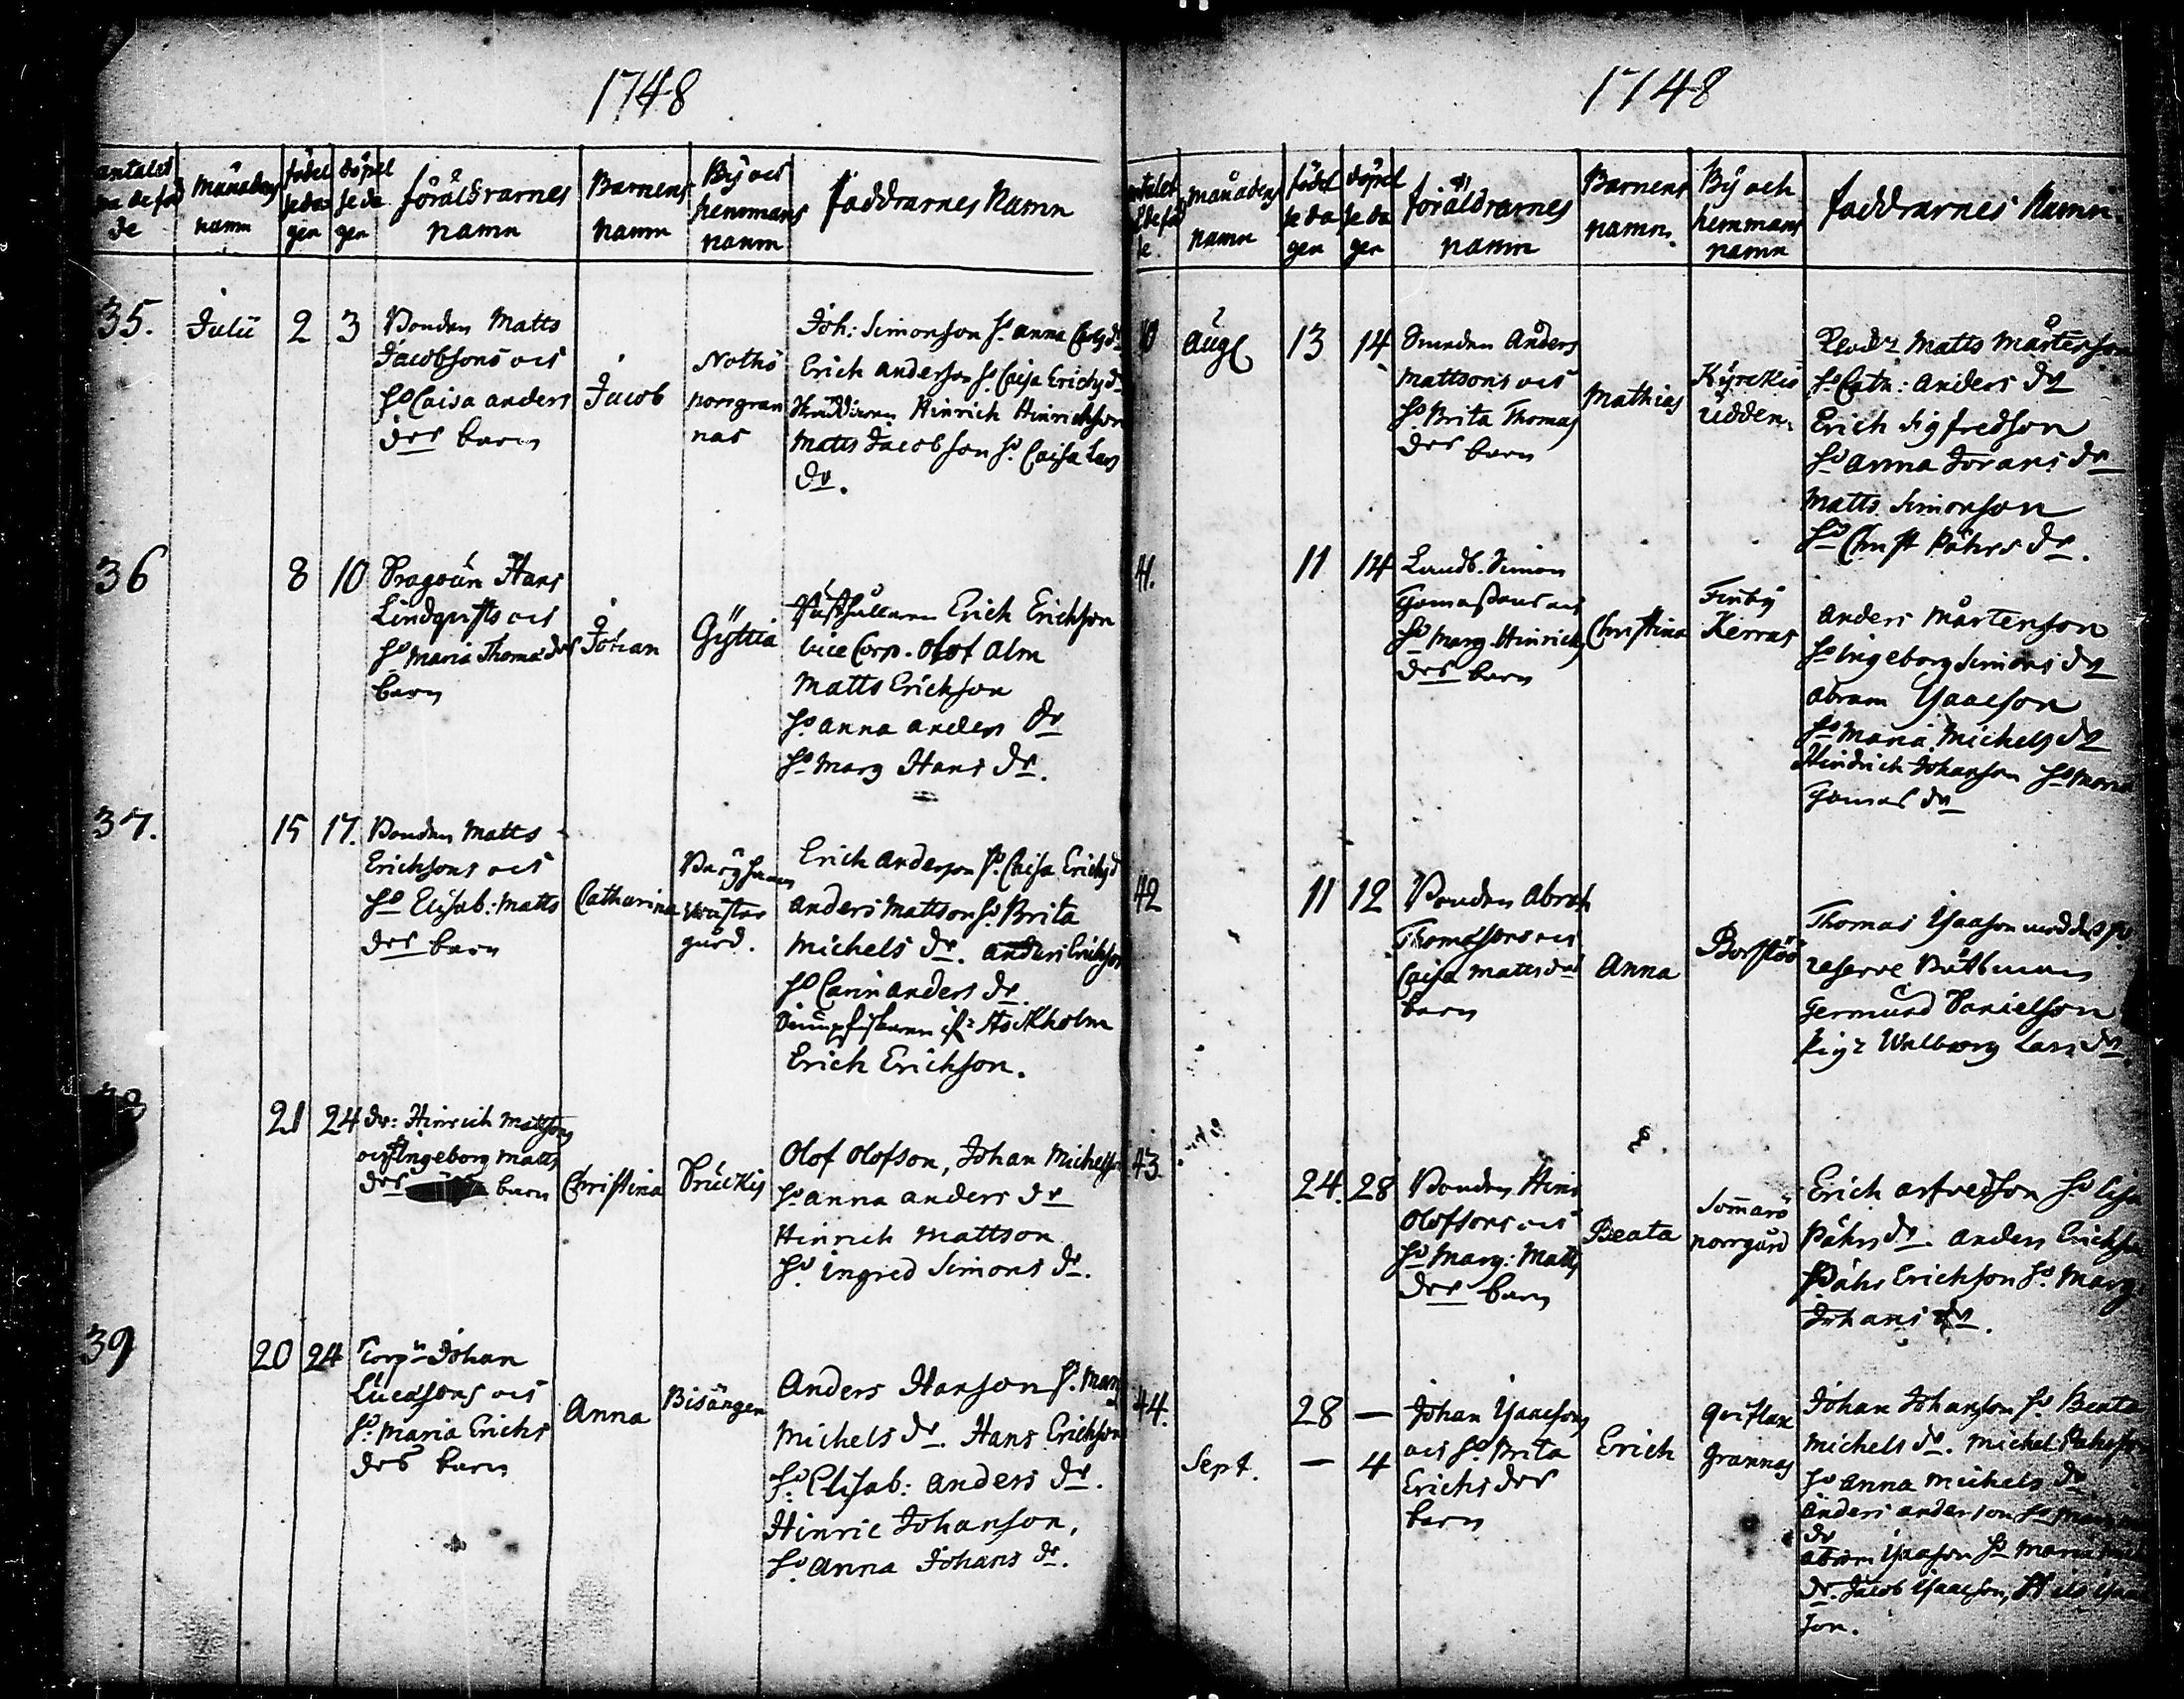 1748
antalet
de föd
de
Månadens
namn
födel
seda
gen
döpel
seda
gen
föräldrarnes
namn
Barnens
namn
By och
hemmans
namn
faddrarnes Namn
35. Julii 2 3
Bonden Matts
Jacobsons och
hu Caisa anders
drs barn
Jacob
Nothö
norrgran
nas
Joh: Simonson hu anna Carlsdr
Erich anderson hu Caisa Erichsdr
Hinrich Hinrichson
Matts Jacobson hu Caisa Lars
dr.
36 8 10
Dragoun Hans
Lindqvists och
hu Maria Thomædrs
barn
Johan
Gyttia
Erich Erichson
vice Corp. Olof Alm
Matts Erichson
hu anna anders dr
hu Marg Hans dr.
37. 15 17.
Bonden Matts
Erichsons och
hu Elisab: Matts
drs barn
Catharina
wäster
gård.
Erich anderson hu Caisa Erichsd
anders Mattson hu Brita
Michels dr. anders Erichson
hu Carin anders dr.
Stockholm
Erich Erichson.
38 21 24
dr: Hinrich Mattsons
och Ingeborg Matts
drs barn
Christina
Prückis
Olof Olofson, Johan Michelson
hu anna anders dr
Hinrich Mattson
hu ingred Simons dr.
39 20 24
Torpn Johan
Lucasons och
hu Maria Erichs
drs barn
Anna
Bisängen
Anders Hanson hu Marg
Michels dr. Hans Erichson
hu Elisab: anders dr.
Hinric Johanson,
hu Anna Johans dr.
1748
antalet
de föd
de.
månadens
namn
födel
seda
gen
döpel
seda
gen
föräldrarnes
namn
Barnens
namn.
By och
hemmans
namn
faddrarnes Namn.
40 Aug 13 14
Anders
Mattsons och
hu Brita Thomas
drs barn
Mathias
Kyrckio
udden.
Matts Mårtenson
hu Catn: Anders dr
Erich Sigfredson
hu Anna Jörans dr
Matts Simonson
hu Christ Påhrs dr.
41. 11 14
Landb. Simon
Thomassons och
hu Marg Hinrichs
drs barn
Christina
Finby
Kerras
Anders Mårtenson
hu Ingeborg Simons dr
Abram Isaacson
hu Maria Michels dr
Hindrich Johanson hu Maria
Thomas dr
42 11 12
Bonden Abrah
Thomasons och
Caisa Mattsdrs
barn
Anna
Borstöö
Thomas Isaason med dess hu
reserve Båtsman
Germund Danielson
Pig: Walborg Lars dr.
43. 24. 28
Bonden Hinr
Olofsons och
hu Marg: Matts
drs barn
Beata
Sommarö
norrgård
Erich arfvedson hu Lisa
Påhrs dr. Anders Erichson
Påhr Erichson hu Marg
Johans dr.
44. 28 —
Sept. — 4
Johan Isaacsons
och hu Brita
Erichs drs
barn
Erich
Qviflax
grannas
Johan Johanson hu Beata
Michels dr. Michel Påhrson
hu Anna Michels dr
Anders anderson hu Marg
dr
Abram Isaason hu Maria
dr. Jacob Isaacson,
son.